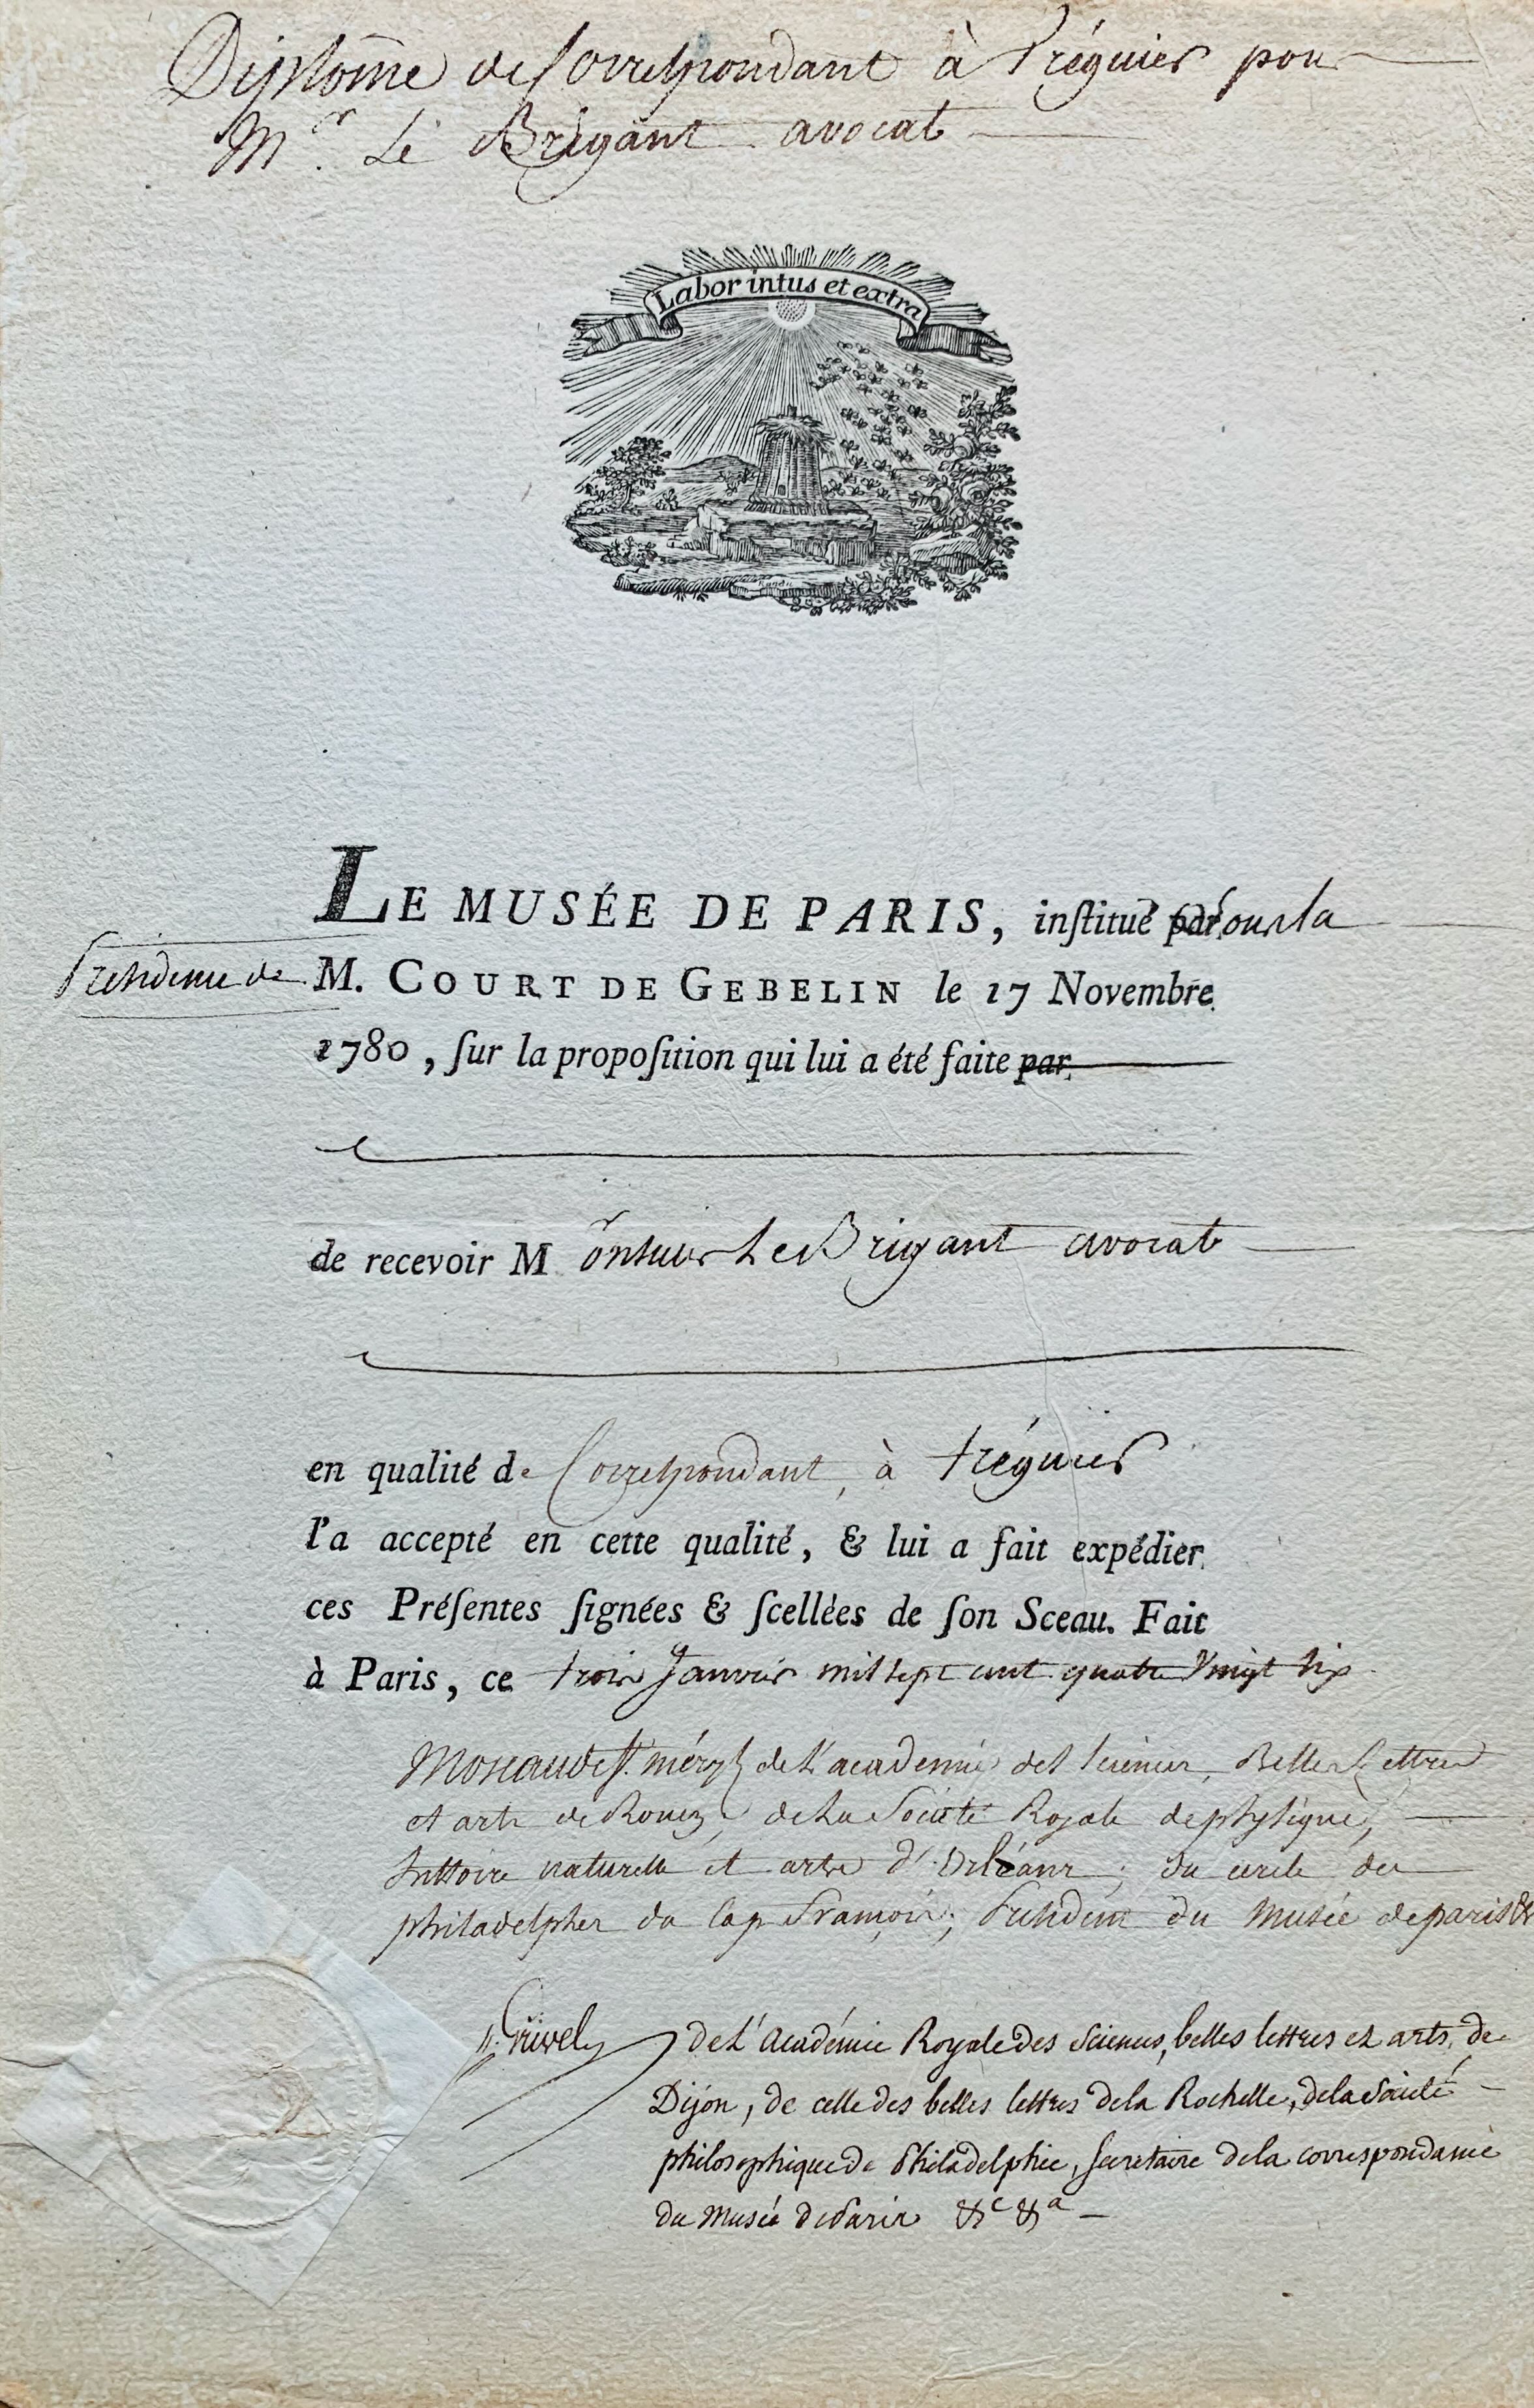 Diplome de Correspondant à Tréguier pour
Mr. Le Brigant avocat
Labor intus et extra
LE MUSÉE DE PARIS, inſtitué par sous la
Présidence de M. COURT DE GEBELIN le 17 Novembre
1780, ſur la propoſition qui lui a été faite par
de recevoir M onsieur Le Brigant avocat
en qualité de Correspondant, à tréguier
l'a accepté en cette qualité, & lui a fait expédier
ces Préſentes ſignées & ſcellées de ſon Sceau. Fait
à Paris, ce trois Janvier mil sept cent quatre Vingt six
Moreau de St. méry de L'academie des sciences, Belles Lettres
et arts de Rouen, de La Société Royale de physique,
histoire naturelle et arts d'Orléans; du cercle des
philadelphes du Cap François; Président du Musée de paris &c
Grivel, de L'Académie Royale des Sciences, belles lettres et arts, de
Dijon, de celle des belles lettres de la Rochelle, de la Société
philosophique de Philadelphie, secretaire de la correspondance
du Musée de Paris &c &a